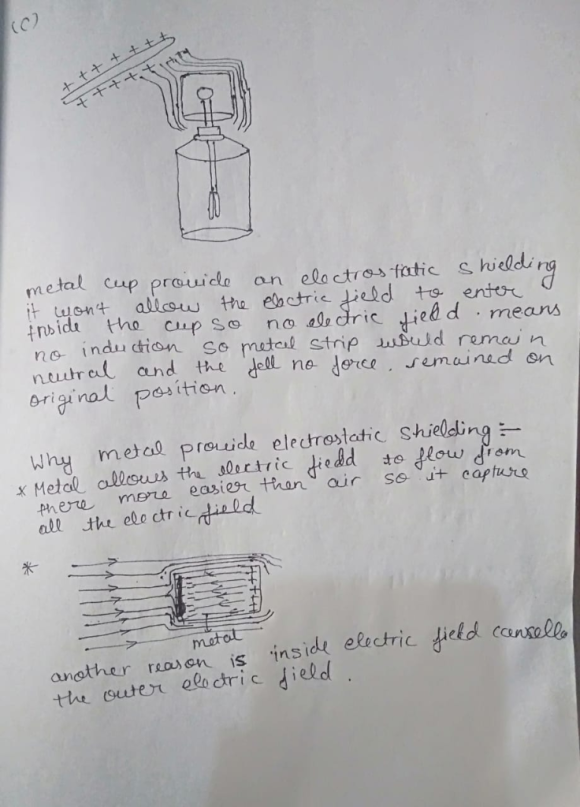 (C)
+ + + + + + +
+ + + + + +
metal cup provide an electrostatic shielding
it won't allow the electric field to enter
inside the cup so no electric field. means
no induction so metal strip would remain
neutral and the fell no force. remained on
original position.
Why metal provide electrostatic shielding :-
* Metal allows the electric fiedd to flow from
there more easier then air so it capture
all the electric field
*
metal
another reason is inside electric field cansells
the outer electric field.